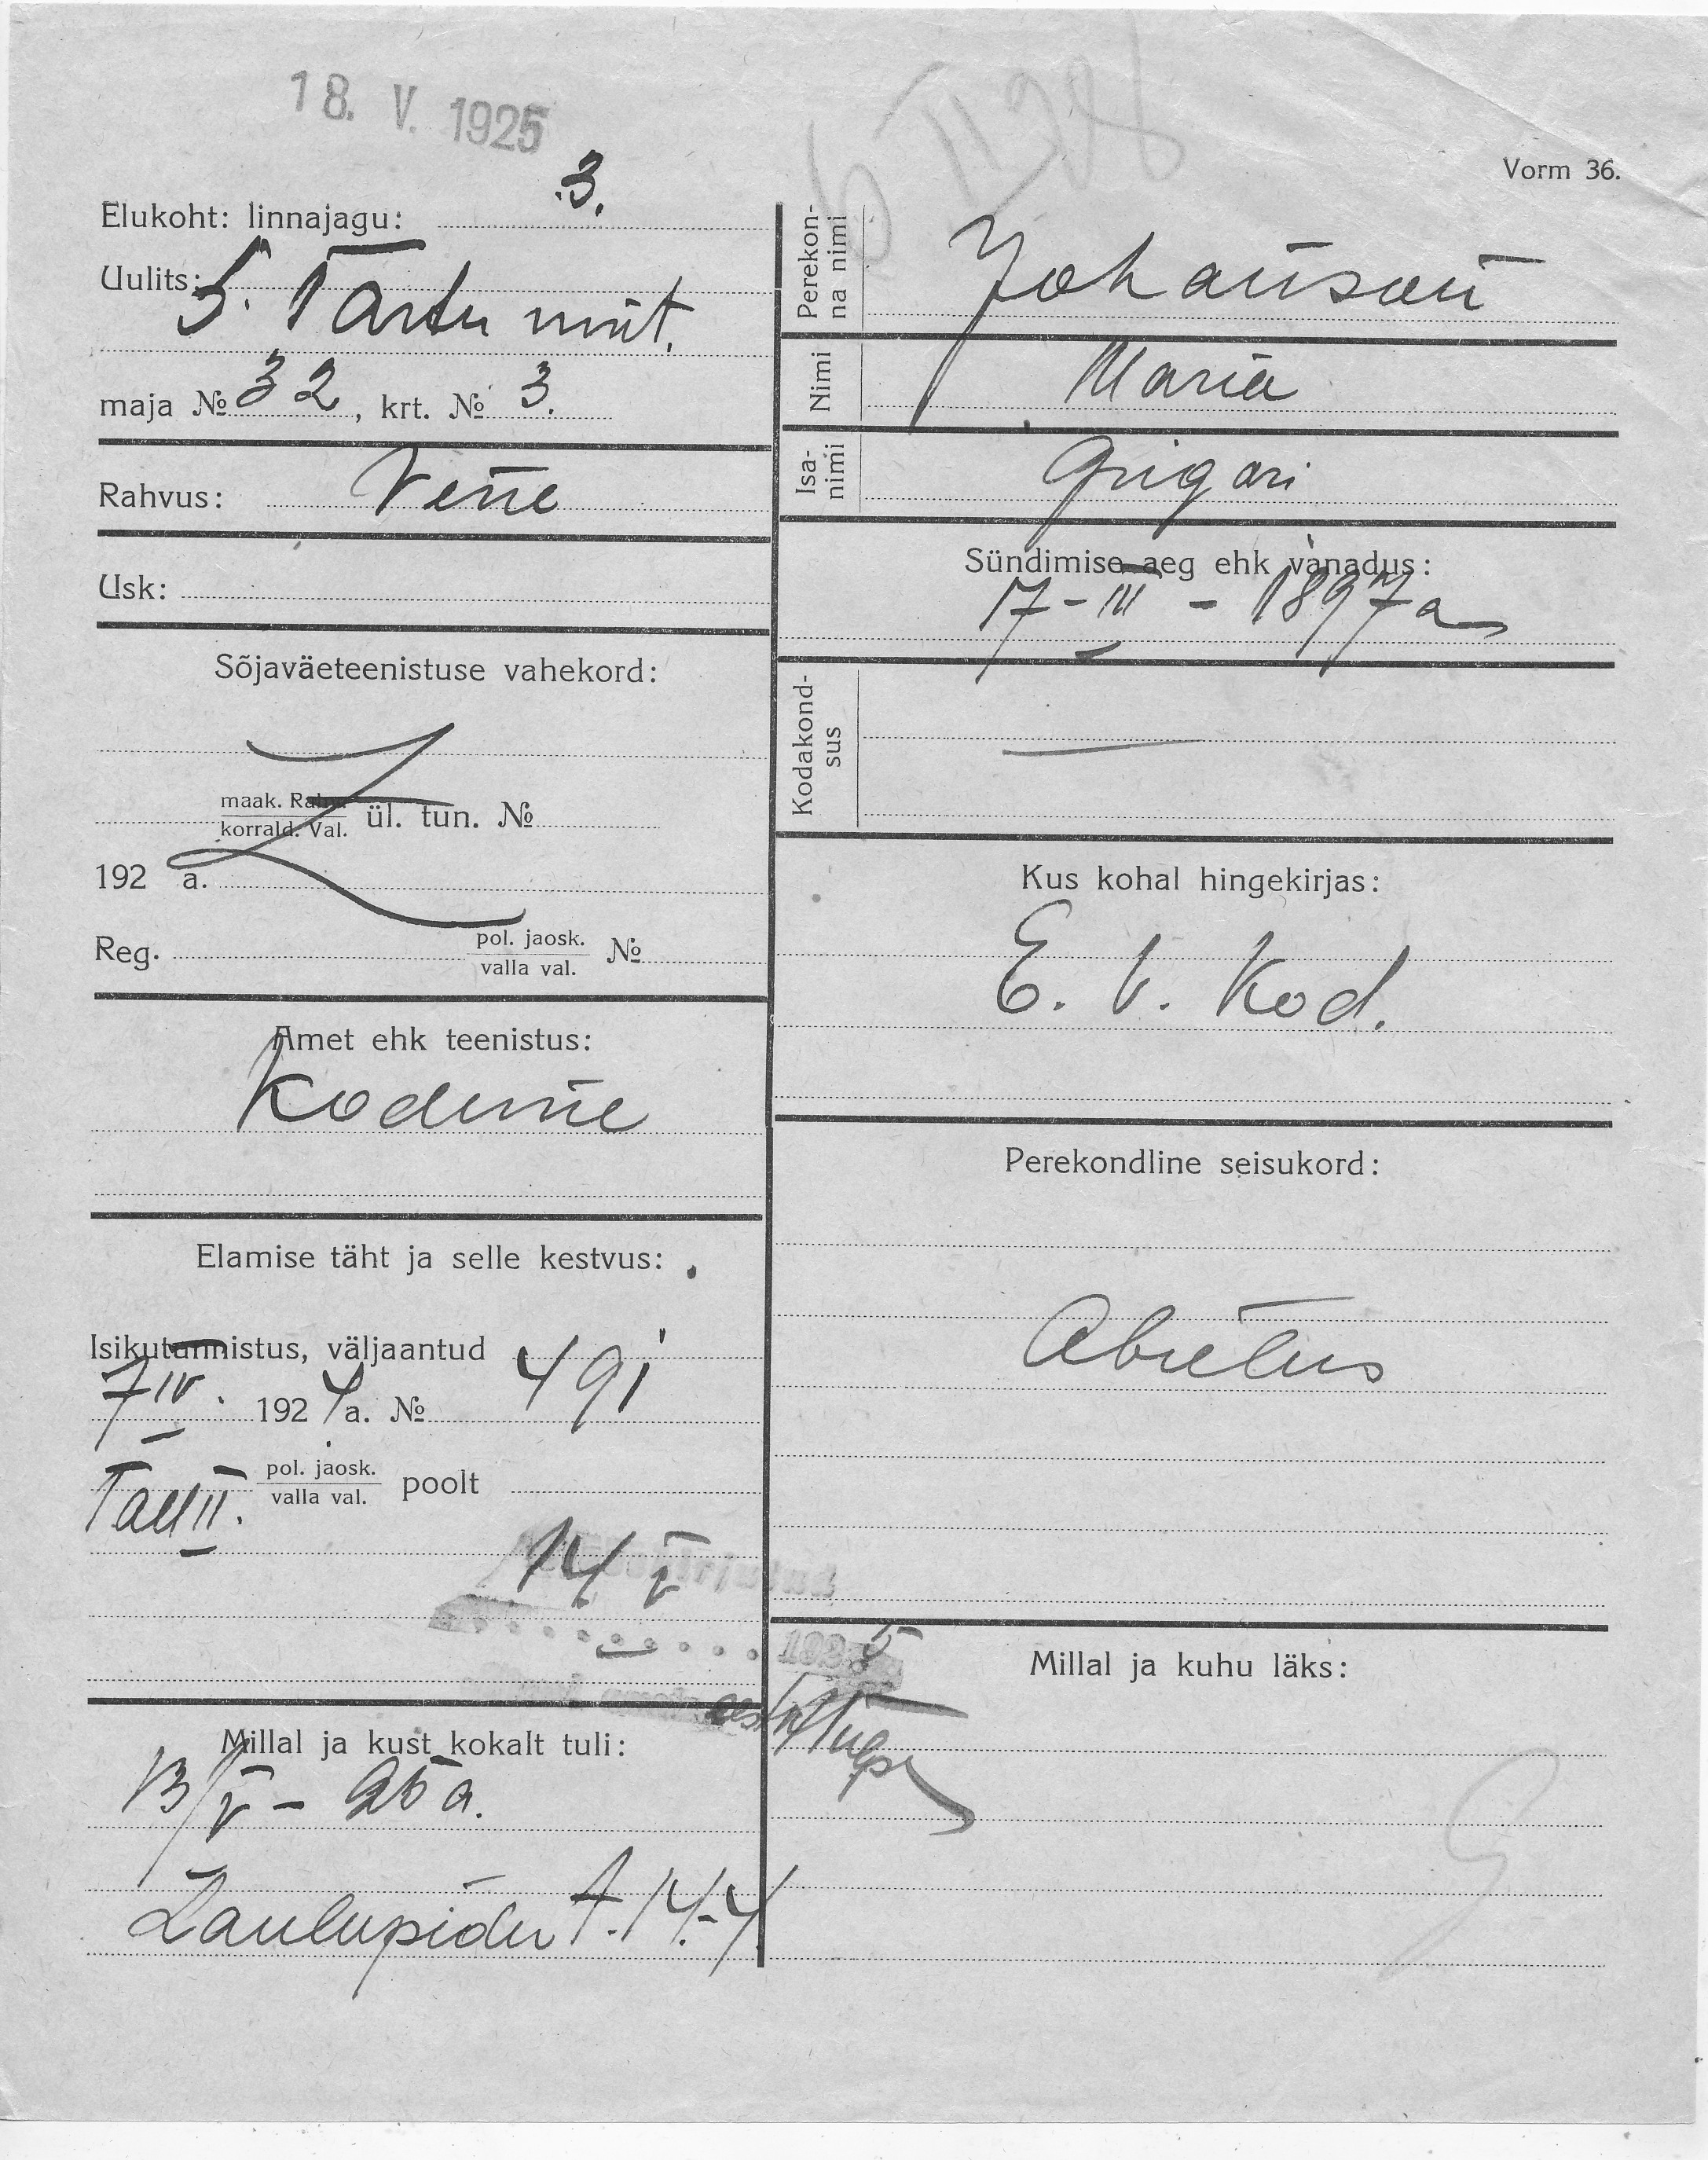 18. V. 1925
Vorm 36.
Elukoht: linnajagu: 3.
Uulits: S. Tartu mnt.
maja № 32, krt. № 3.
Rahvus: Vene
Usk:
Sõjaväeteenistuse vahekord:
maak. Rahu
korrald. Val. ül. tun. №
192 a.
Reg. pol. jaosk.
valla val. №
Amet ehk teenistus:
Kodune
Elamise täht ja selle kestvus:
Isikutunnistus, väljaantud
7 IV. 1924 a. № 491
Tall II. pol. jaosk.
valla val. poolt
14 V
1925
Millal ja kust kokalt tuli:
13/V - 25 a.
Laulupidu t. 14-4
Perekon-
na nimi
Johanson
Nimi
Maria
Isa-
nimi
Grigori
Sündimise aeg ehk vanadus:
17-III-1897 a
Kodakond-
sus
Kus kohal hingekirjas:
E. V. Kod.
Perekondline seisukord:
Abielus
Millal ja kuhu läks: